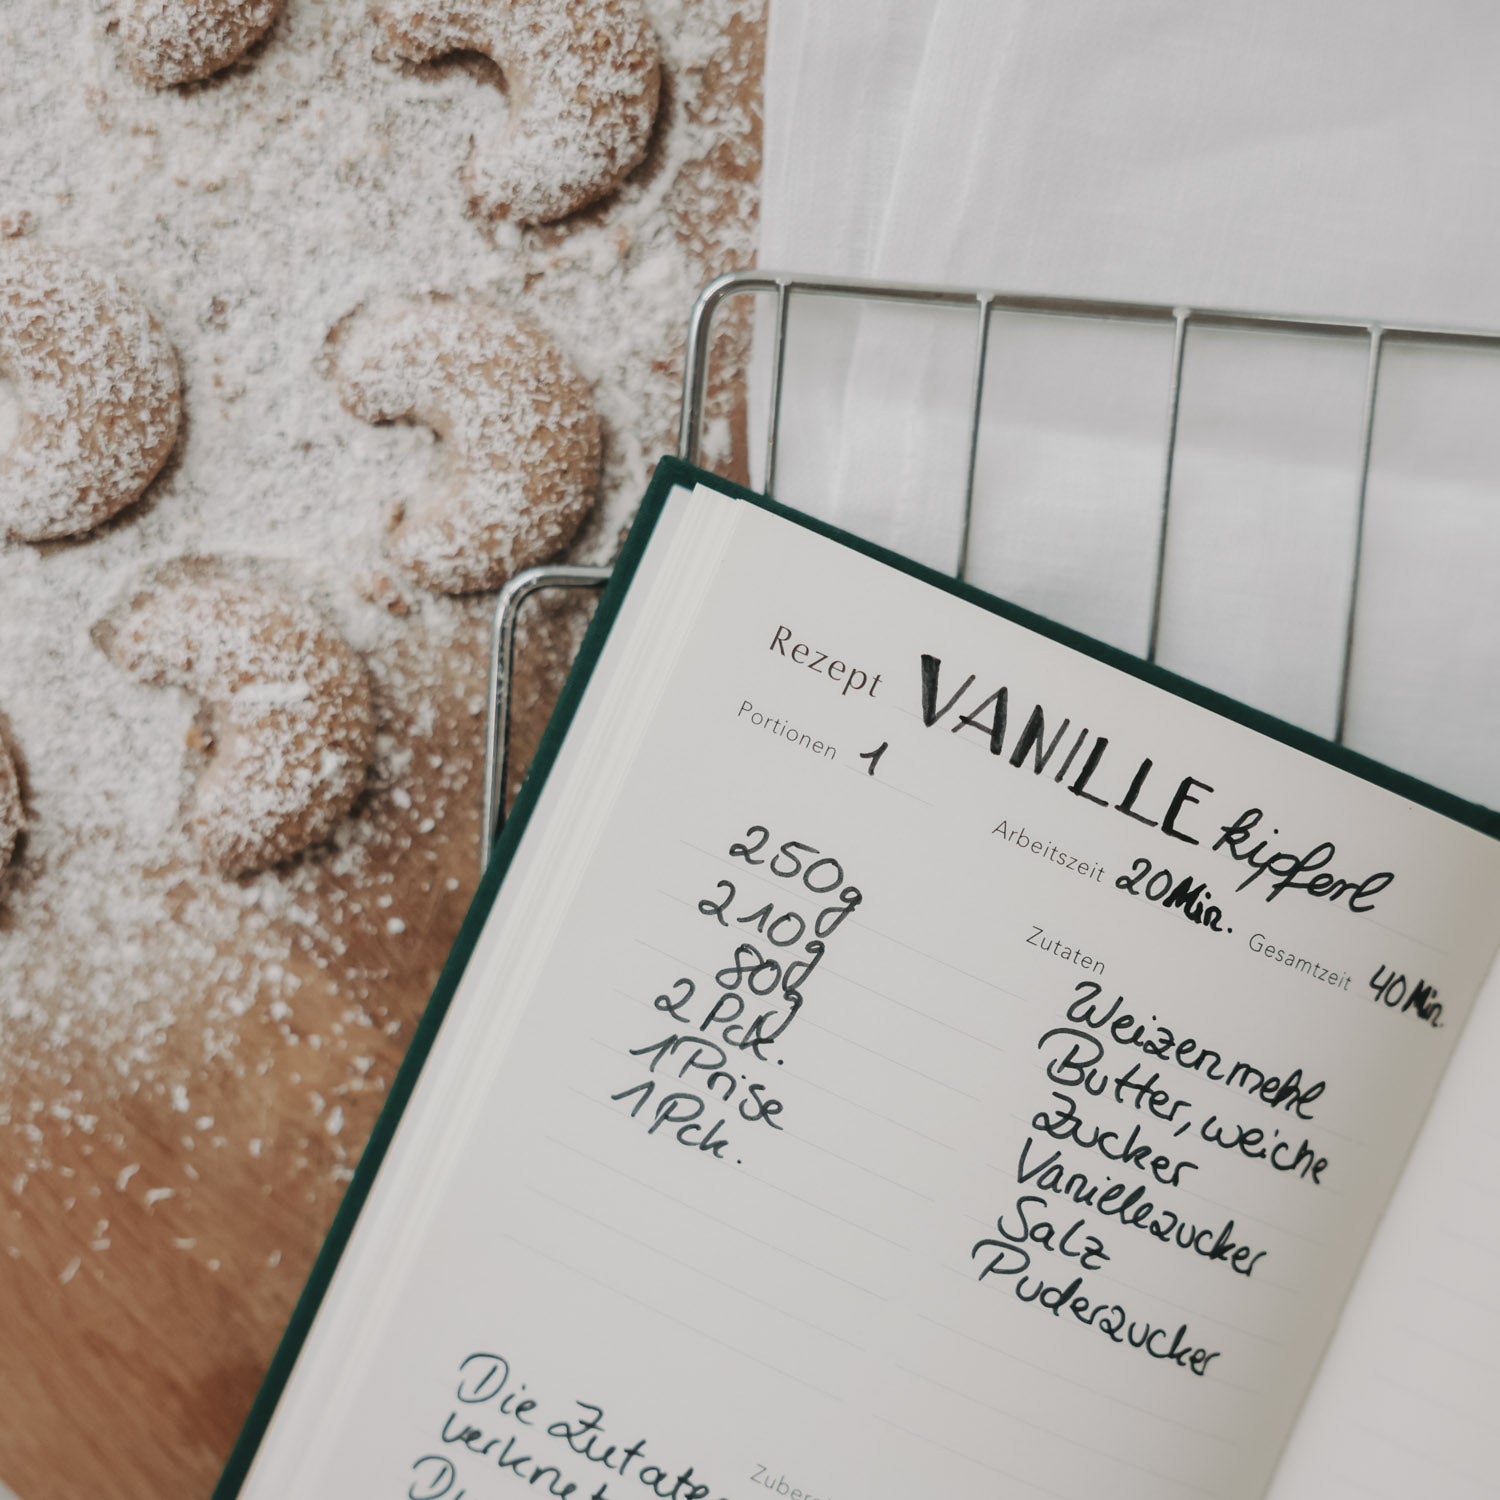 Rezept VANILLE kipferl
Portionen 1
Arbeitszeit 20 Min. Gesamtzeit 40 Min.
Zutaten
250g Weizenmehl
210g Butter, weiche
80g Zucker
2 Pck. Vanillezucker
1 Prise Salz
1 Pck. Puderzucker
Die